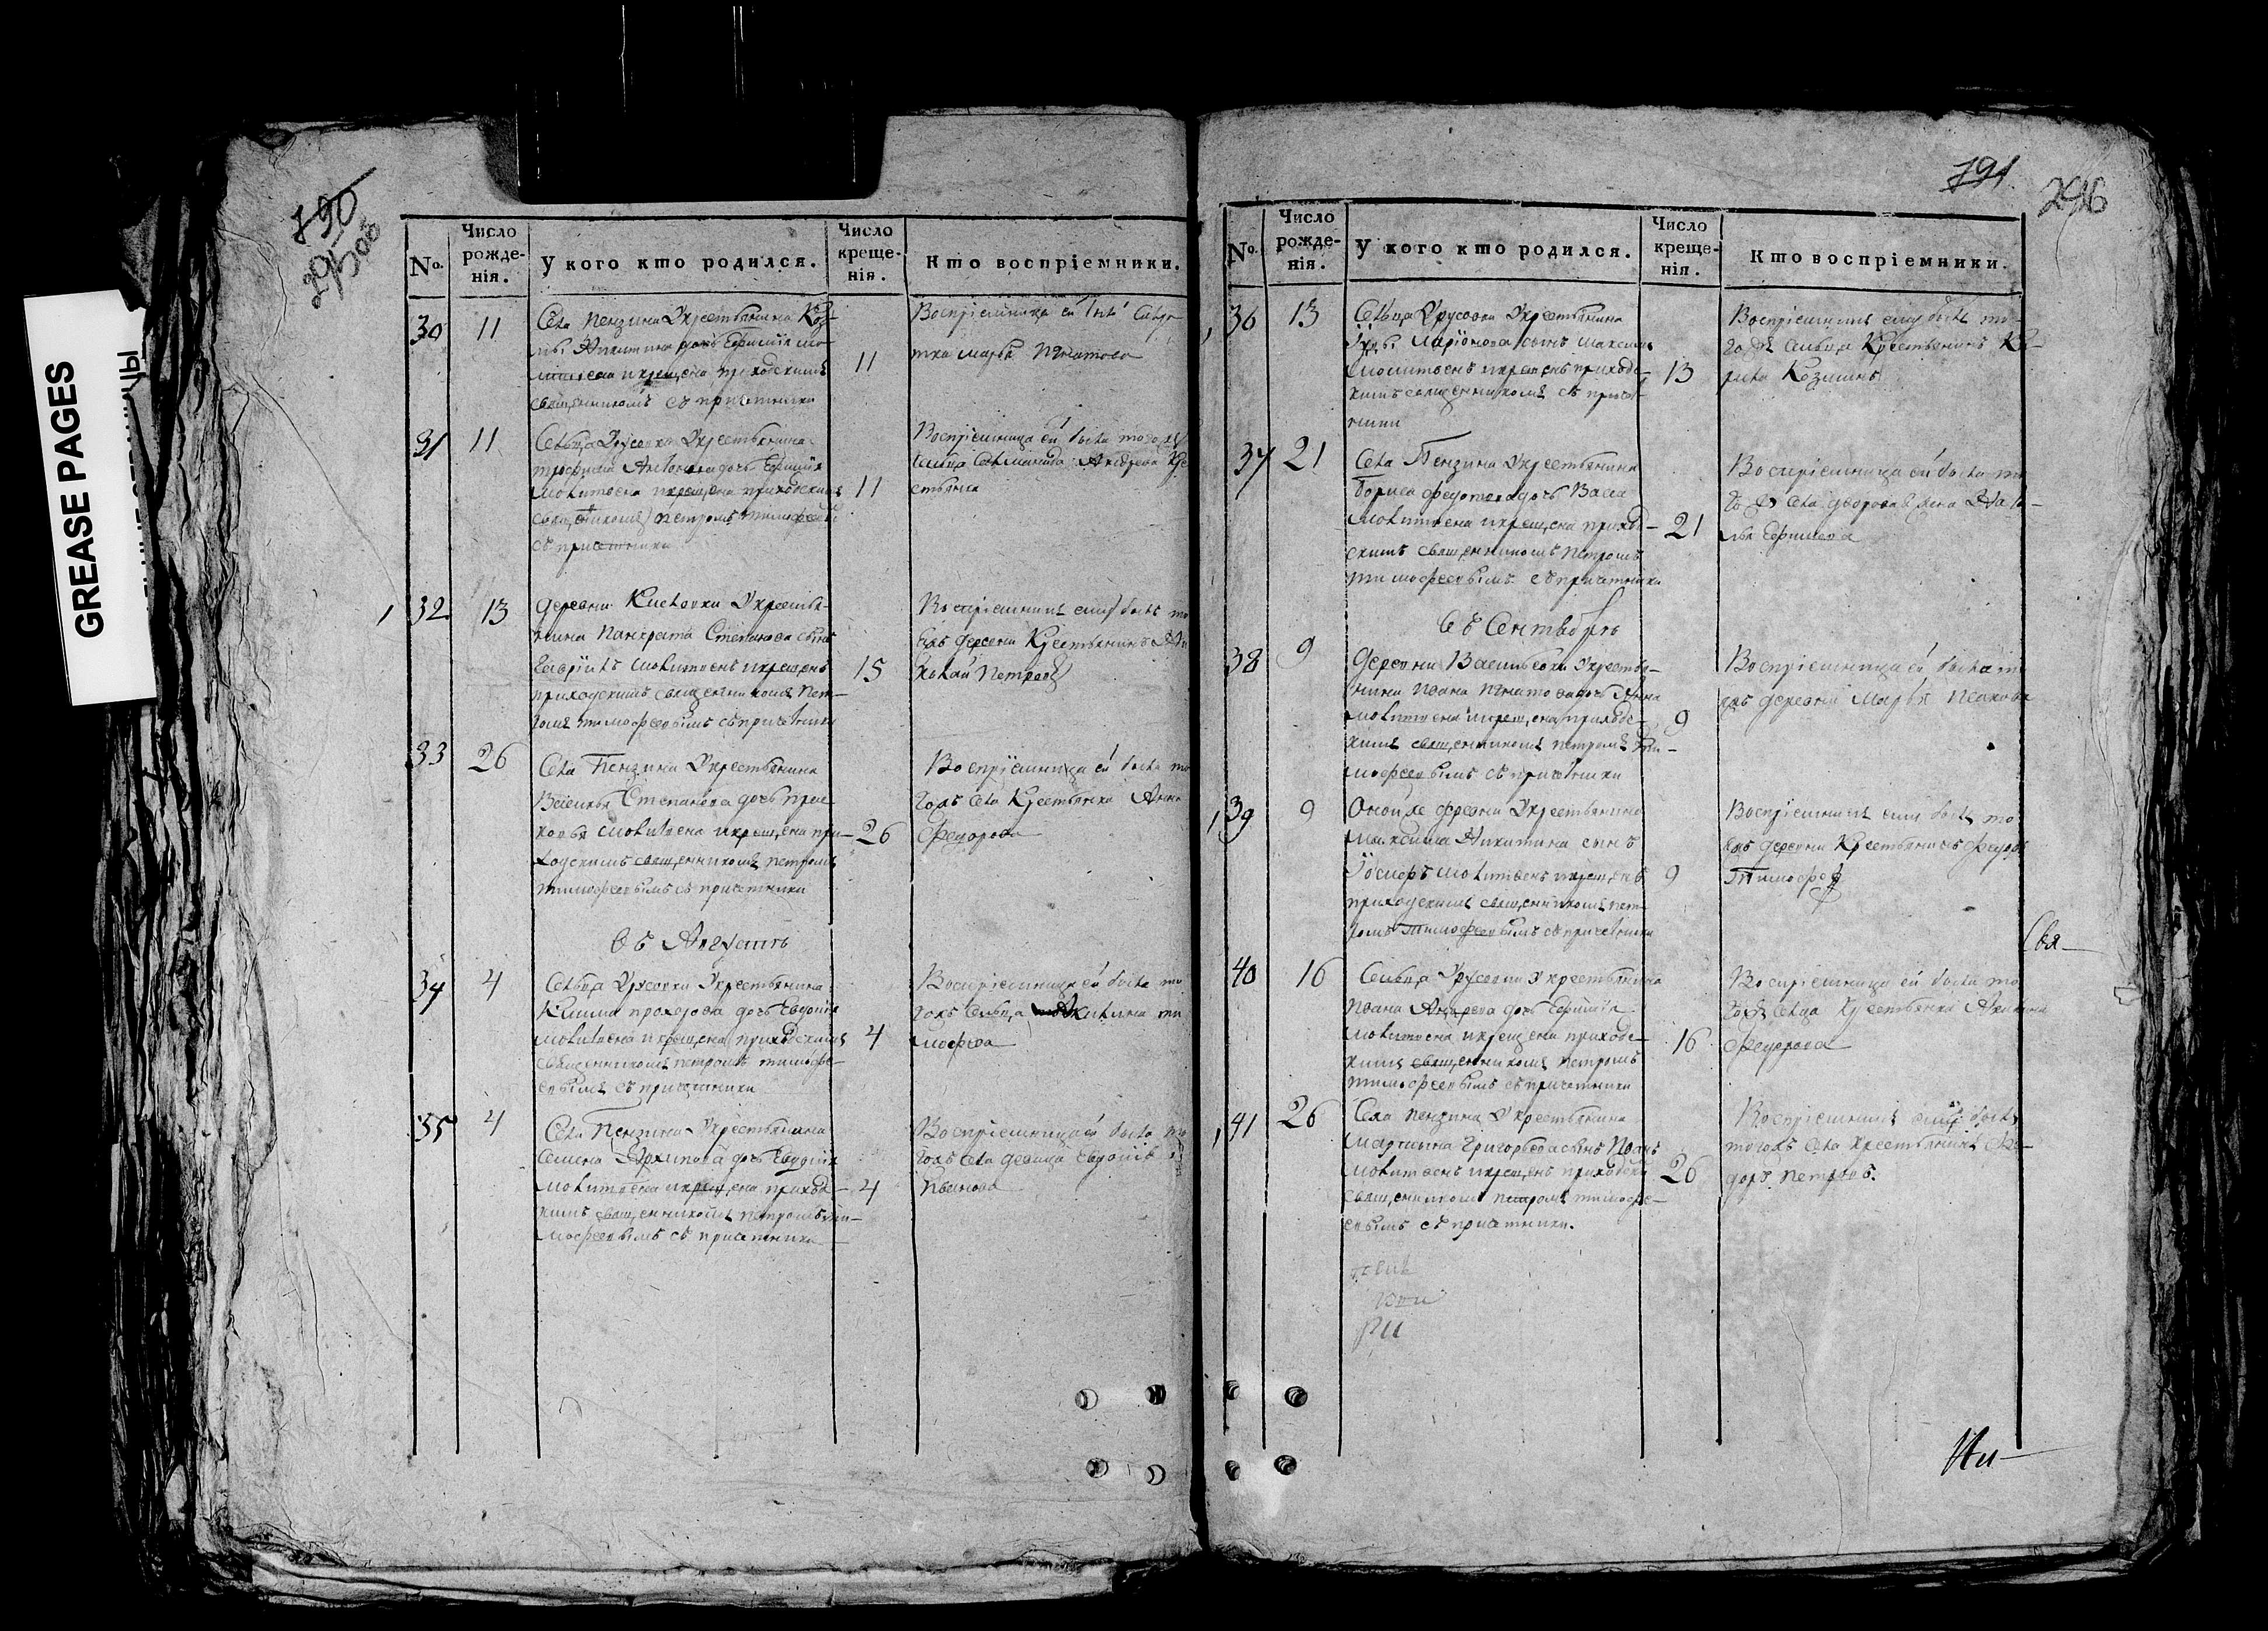 GREASE PAGES
790
791
296
No. Число рожденія. У кого кто родился. Число крещенія. Кто воспріемники.
30 11
Села Пензина Укрестьянина Коз-
мы Никитина дочь Ефимія мо-
литвена и крещена приходскимъ
священникомъ съ причетники
11
Воспріемница ей
Марья Игнатова
31 11
Сельца Урусовки Укрестьянина
Трофима Антонова дочь Ефимія
молитвена и крещена приходскимъ
священникомъ Петромъ Тимофеевы
съ причетники
11
Воспріемница ей была тогожъ
сельца Андреева Кре
стьянка
32 13
Деревни Укрестья-
нина Панкрата Степанова сынъ
Гавріилъ молитвенъ и крещенъ
приходскимъ священникомъ Пет-
ромъ Тимофеевымъ съ причетники
15
Воспріемникъ ему былъ то
яжъ деревни Крестьянинъ Ни
колай Петровъ
33 26
Села Пензина Укрестьянина
Василья Степанова дочь Прас
ковья молитвена и крещена при-
ходскимъ священникомъ Петромъ
Тимофеевымъ съ причетники
26
Воспріемница ей была то
гожъ села Крестьянка Анна
Федорова
въ Августѣ
34 4
Сельца Урусовки Укрестьянина
Клима Прохорова дочь Евдокія
молитвена и крещена приходскимъ
священникомъ Петромъ Тимофе-
евымъ съ причетники
4
Воспріемница ей была то
гожъ сельца Акилина Ти
мофеева
35 4
Села Пензина Укрестьянина
Семена Архипова дочь Евдокія
молитвена и крещена приход-
скимъ священникомъ Петромъ Ти-
мофеевымъ съ причетники
4
Воспріемница ей была то
гожъ села девица Евдокія
Иванова
No. Число рожденія. У кого кто родился. Число крещенія. Кто воспріемники.
36 13
Сельца Урусовки Укрестьянина
Ларіонова сынъ Максимъ
молитвенъ и крещенъ приход-
скимъ священникомъ съ причет-
ники
13
Воспріемникъ ему былъ то-
гожъ сельца Крестьянинъ Ки-
рила Козминъ
37 21
Села Пензина Укрестьянина
Бориса Федотова дочь Васса
молитвена и крещена приход-
скимъ священникомъ Петромъ
Тимофеевымъ съ причетники
21
Воспріемница ей была то
гожъ села дворовая жена Ната-
лья Ефимова
въ Сентябрѣ
38 9
Деревни Васильевки Укрестья-
нина Ивана Игнатова дочь Анна
молитвена и крещена приход-
скимъ священникомъ Петромъ Ти-
мофеевымъ съ причетники
9
Воспріемница ей была то
яжъ деревни Марья Исакова
39 9
Оной же деревни Укрестьянина
Максима Никитина сынъ
Іосифъ молитвенъ и крещенъ
приходскимъ священникомъ Пет-
ромъ Тимофеевымъ съ причетники
9
Воспріемникъ ему былъ то
яжъ деревни Крестьянинъ Федоръ
Тимофеев
Свя-
40 16
Сельца Урусовки Укрестьянина
Ивана Андреева дочь Ефимія
молитвена и крещена приход-
скимъ священникомъ Петромъ
Тимофеевымъ съ причетники
16
Воспріемница ей была то
гожъ сельца Крестьянка Акилина
Федорова
41 26
Села Пензина Укрестьянина
Мартына Григорьева сынъ Иванъ
молитвенъ и крещенъ приходски
священникомъ Петромъ Тимофе-
евымъ съ причетники.
26
Воспріемникъ ему былъ
тогожъ села Крестьянинъ Фе-
доръ Петровъ.